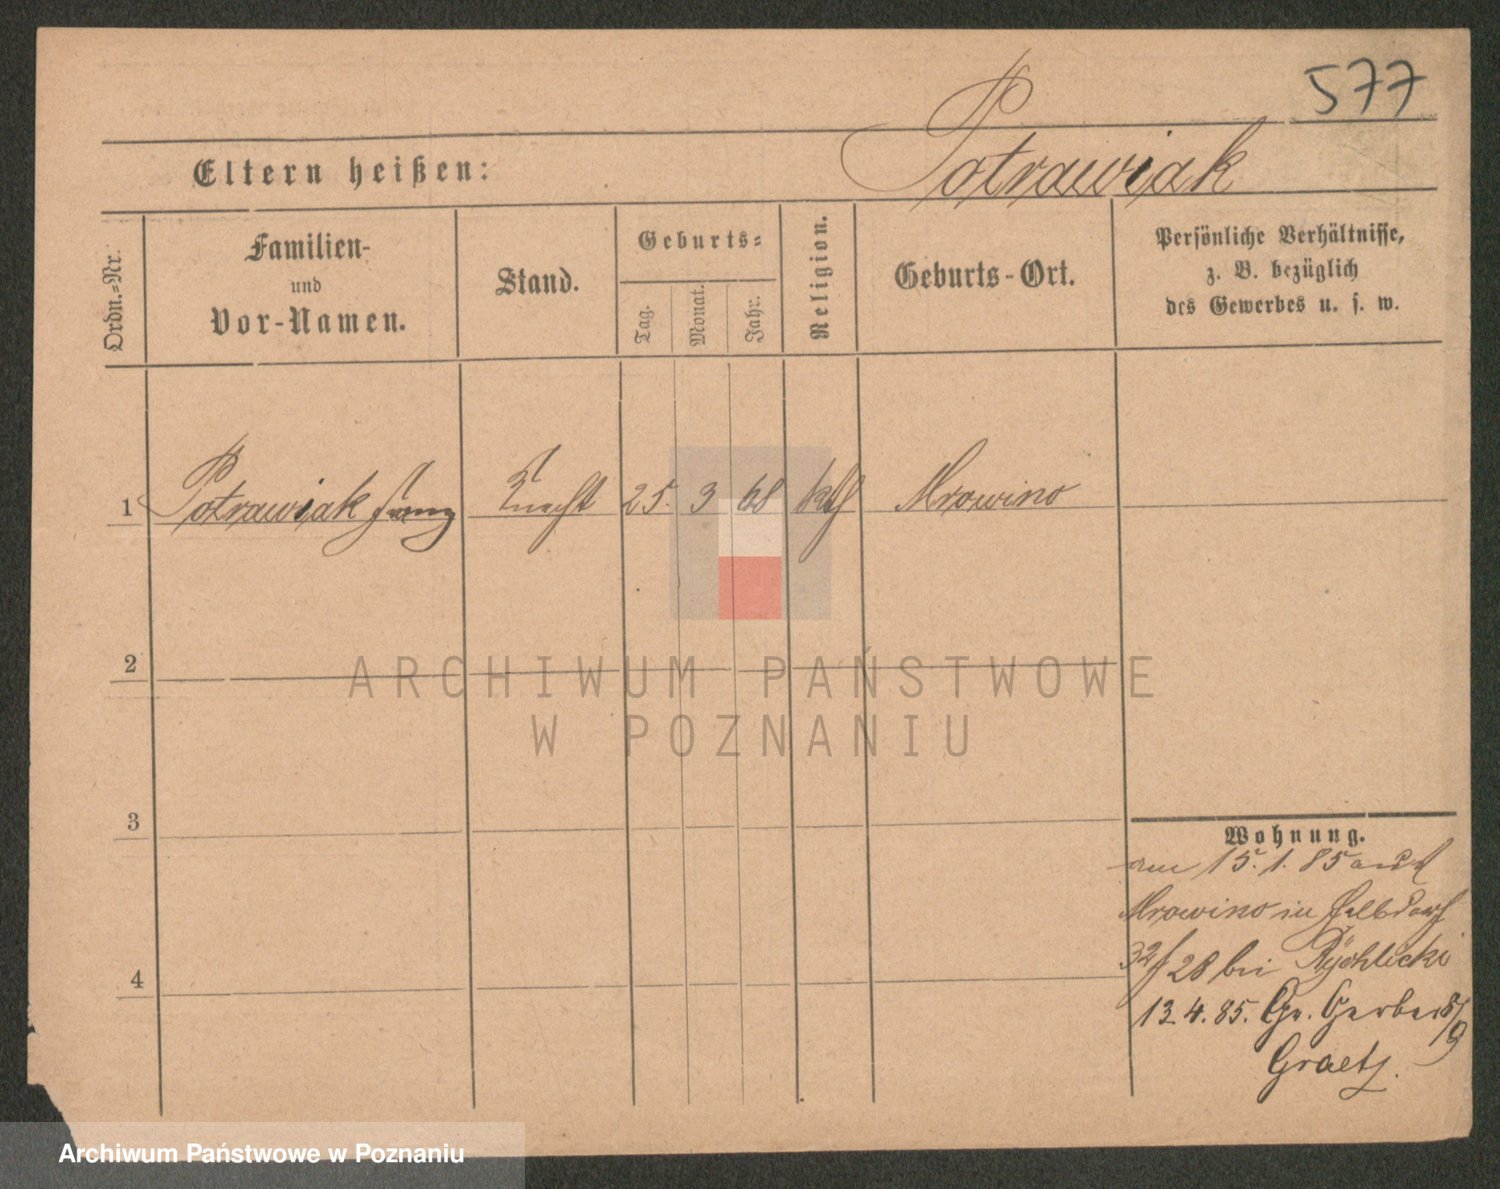 577
Eltern heißen: Potrawiak
Ordn.=Nr.
Familien-
und
Vor-Namen.
Stand.
Geburts=
Tag.
Monat.
Jahr.
Religion.
Geburts-Ort.
Persönliche Verhältnisse,
z. B. bezüglich
des Gewerbes u. s. w.
1 Potrawiak Franz Knecht 25. 3 68 kath Mrowino
2
ARCHIWUM PAŃSTWOWE
W POZNANIU
3
Wohnung.
am 15. 1. 85 aus
Mrowino in
28 bei Rychlicki
4
13.4.85. Gr. Gerber 8/9
Graetz.
Archiwum Państwowe w Poznaniu